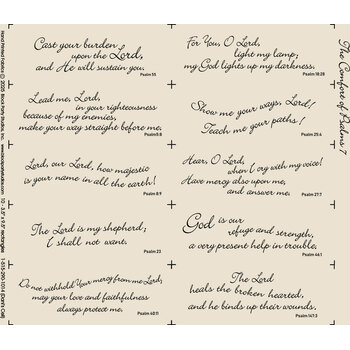 Cast your burden
upon the Lord,
and He will sustain you.
Psalm 55
For You, O Lord,
light my lamp;
my God lights up my darkness.
Psalm 18:28
Lead me, Lord,
in your righteousness
because of my enemies,
make your way straight before me.
Psalm 5:8
Show me your ways, Lord!
Teach me your paths!
Psalm 25:4
Lord, our Lord, how majestic
is your name in all the earth!
Psalm 8:9
Hear, O Lord,
when I cry with my voice!
Have mercy also upon me,
and answer me.
Psalm 27:7
The Lord is my shepherd;
I shall not want.
Psalm 23
God is our
refuge and strength,
a very present help in trouble.
Psalm 46:1
Do not withhold Your mercy from me Lord,
may your love and faithfulness
always protect me.
Psalm 40:11
The Lord
heals the broken hearted,
and he binds up their wounds.
Psalm 147:3
The Comfort of Psalms 7